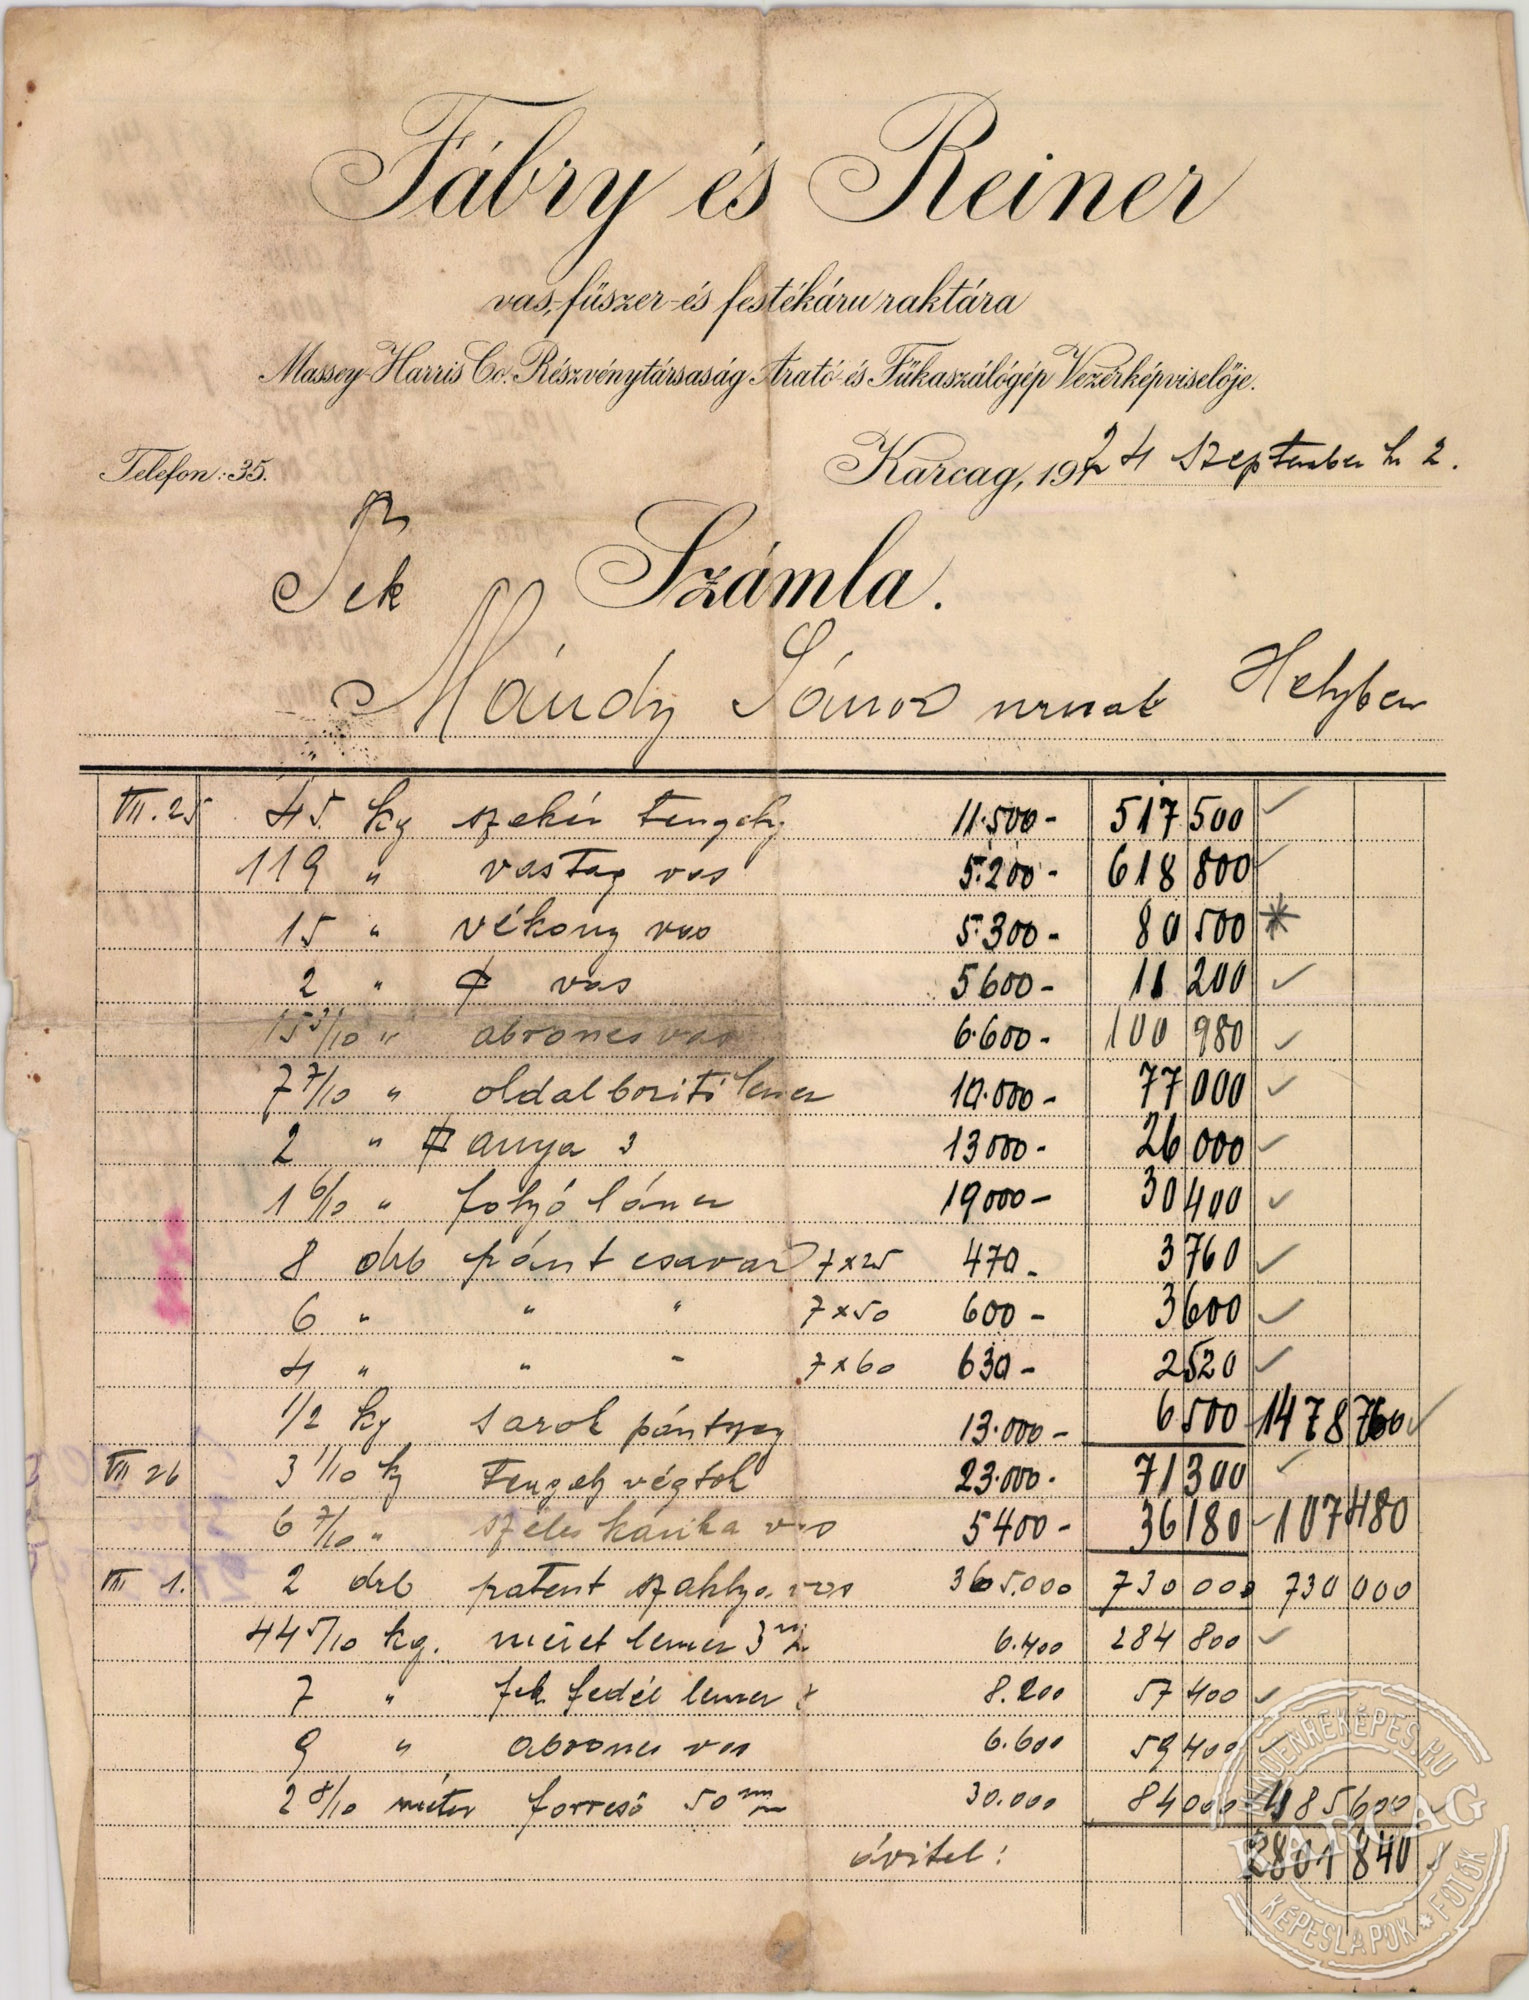 Fábry és Reiner
vas, fűszer- és festékáru raktára
Massey-Harris Co. Részvénytársaság Arató- és Fűkaszálógép Vezérképviselője.
Telefon: 35.
Karcag, 1924 szeptember hó 2.
Tek
Számla.
Mándy János urnak Helyben
VII. 25 45 kg szekér tengely 11.500- 517 500
119 " vastag vas 5.200- 618 800
15 " vékony vas 5.300- 80 500
2 " vas 5600- 11 200
15 3/10 " abroncs vas 6.600- 100 980
7 7/10 " oldalboritó lemez 10.000- 77 000
2 " anya 13000- 26 000
1 6/10 " folyó lánc 19000- 30 400
8 drb pánt csavar 7x25 470- 3 760
6 " " " 7x50 600- 3 600
4 " " " 7x60 630- 2 520
1/2 kg sarok pánt 13.000- 6 500 1478 760
VII 26 3 1/10 kg Tengely végtok 23.000- 71 300
6 7/10 " széles karika vas 5400- 36 180 107 480
VIII. 1. 2 drb patent 365.000 730 000 730 000
44 5/10 kg. méret lemez 3 6.400 284 800
7 " fek. fedél lemez 8.200 57 400
9 " abroncs vas 6.600 59 400
2 8/10 méter forrcső 50 mm 30.000 84 000 485 600
átvitel: 2801 840
MINDENKEPES.HU
KARCAG
KÉPESLAPOK * FOTÓK